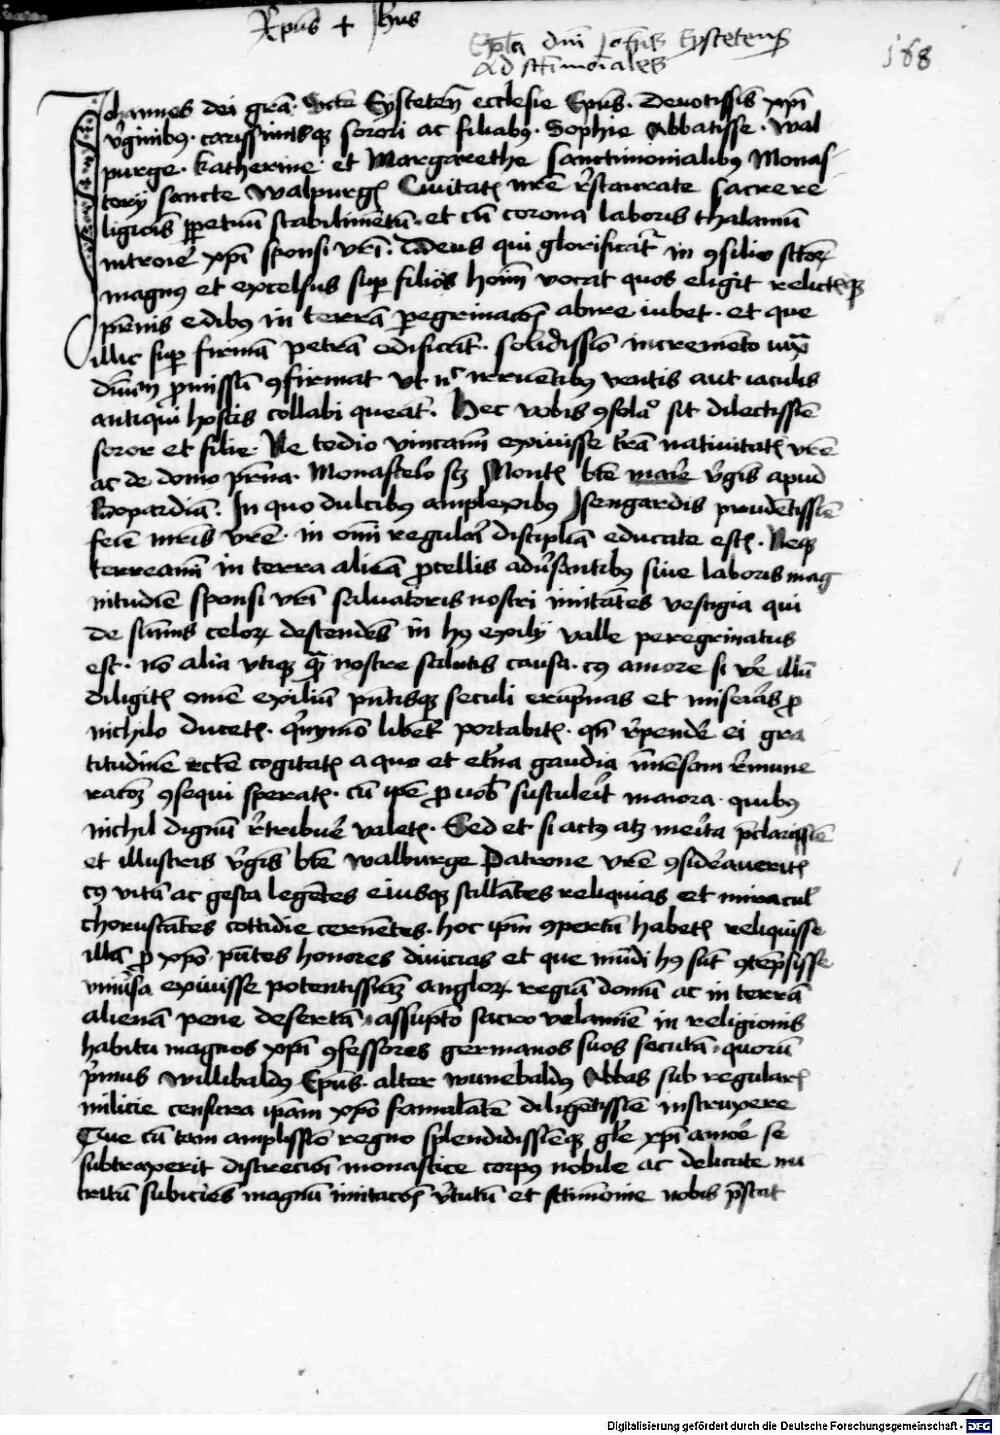 Xp̄us + Jh̄us
Ep̄la dn̄i Joh̄is Eysteten̄
Ad sc̄timoīales
168
Johannes dei gr̄a. Sc̄te Eysteten̄ ecclesie Ep̄us. Deuotissīs xp̄i
v̓ginibꝯ. carissimisqꝫ sorori ac filiabꝯ. Sophie Abbatisse. Wal
purge. Katherine. et Margarethe Sanctimonialibꝯ Monas
torij sancte Walpurgꝭ Ciuitatꝭ nr̄e r̓staurate sacre re
ligiōis ꝑpetuū stabilimētū. et cū corona laboris thalamū
introire xp̄i sponsi vr̄i. Deus qui glorificat̓ in ꝯsilio sc̄toꝝ
magnꝯ et excelsus suꝑ filios hoīm vocat quos eligit relictisqꝫ
pr̄nis edibꝯ in terrā ꝑegrinacōꝭ abire iubet. et que
illic suꝑ firmā petrā edificāt. solidissīo incremēto iuxᷓ
diuīm ꝓmissū ꝯfirmat vt nͨ irruētibꝯ ventis aut iaculis
antiqui hostis collabi queāt. Hec vobis ꝯsolaͦ sit dilectissīe
soror et filie. Ne tedio vincamī exiuisse tr̄ā natiuitatꝭ vr̄e
ac de domo pr̄na. Monaster̓ scꝫ Montꝭ btē marie v̓gis apud
Bopardiā. In quo dulcibꝯ amplexibꝯ Isengardis prudētissīe
ferē mr̄is vr̄e. in om̄i regular̓ disciplīa educate estꝭ. Neqꝫ
terreamī in terra aliēa ꝓcellis adūsantibꝯ siue laboris mag
nitudīe sponsi vr̄i saluatoris nostri imitātes vestigia qui
de sūmis celoꝝ descendēs in hꝯ exilij valle peregrinatus
est. nō alia vtiqꝫ qᷓ nostre salutis causa. cꝯ amore si ve̓ illū
diligitꝭ om̄e exiliū pn̄tisqꝫ seculi erūpnas et miserias ꝓ
nichilo ducetꝭ. qn̓ymō libēt̓ portabitꝭ. qn̄ r̓pende̓ ei gra
titudinē rctē cogitatꝭ a quo et et̓na gaudia īmēsam r̓mune
racōꝫ ꝯsequi speratꝭ. cū ip̄e ꝓ vob̓ sustuler̓it maiora. quibꝯ
nichil dignū r̓tribue̓ valetꝭ. Sed et si actꝯ atqꝫ mer̓ita p̄clarissīe
et illustris v̓gis btē Walburge Patrone vr̄e ꝯsideraueritꝭ
cꝯ vitā ac gesta legētes eiusqꝫ stillātes reliquias et miracul̓
choruscātes cottidie cernētes. hoc ip̄m ꝯpertū habetꝭ reliquisse
illā ꝓ xp̄o pn̄tes honores diuicias et que mūdi hꝯ sūt ꝯtēpsisse
vniūsa exiuisse potentissīaꝫ angloꝝ regiā domū ac in terrā
alienā pene desertā. assūpto sacro velamīe in religionis
habitu magnos xp̄i ꝯfessores germanos suos secutā. quorū
p̓mus Willibaldꝯ Ep̄us. alter Wunebaldꝯ Abbas sub regularꝭ
milicie censura ip̄am xp̄o famulātē diligētissīe instruxere
Que cū tam amplissīo regno splendidissīeqꝫ gl̄e xp̄i amor̓e se
subtraxerit discrecioī monastice corpꝯ nobile ac delicate nu
tritū subiciēs magnū imitacōꝭ v̓tutū et sc̄timonie nobis p̄stat